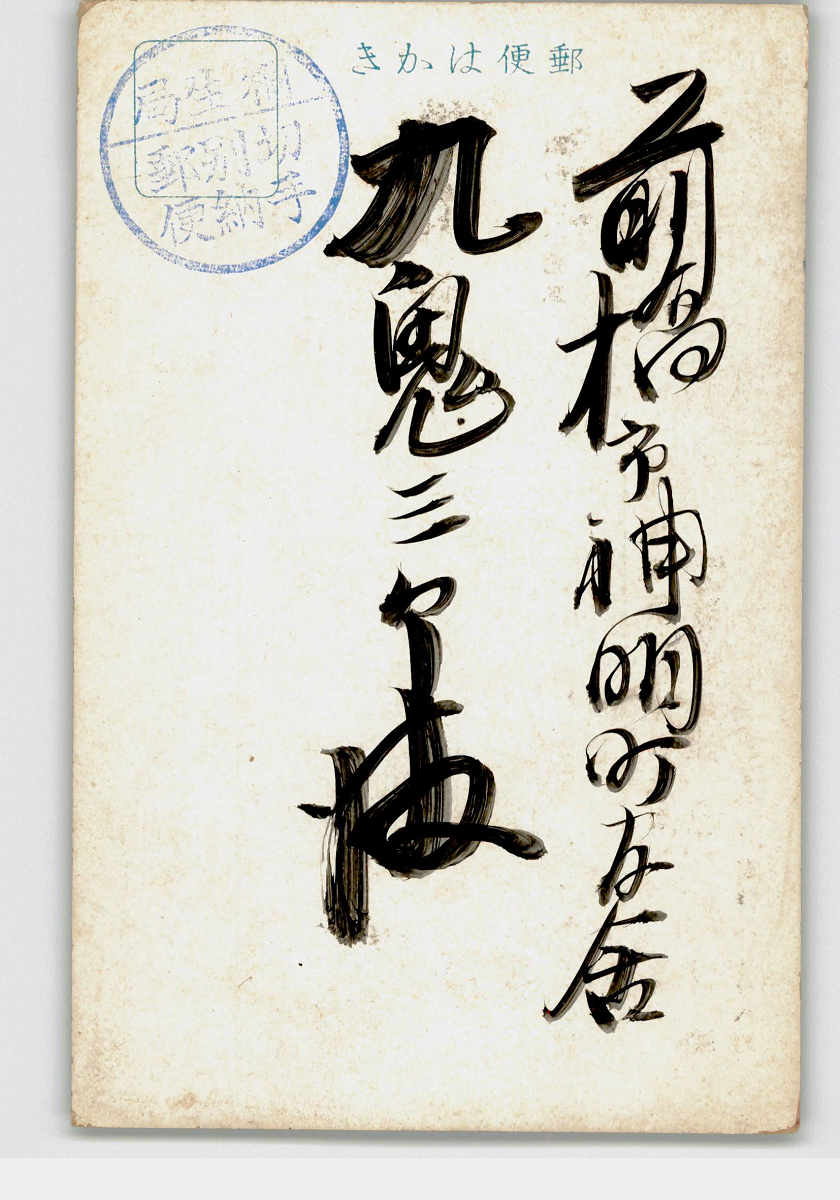 郵便はかき
前橋市神明町
九鬼三郎様
桐生局
切手
別納
郵便